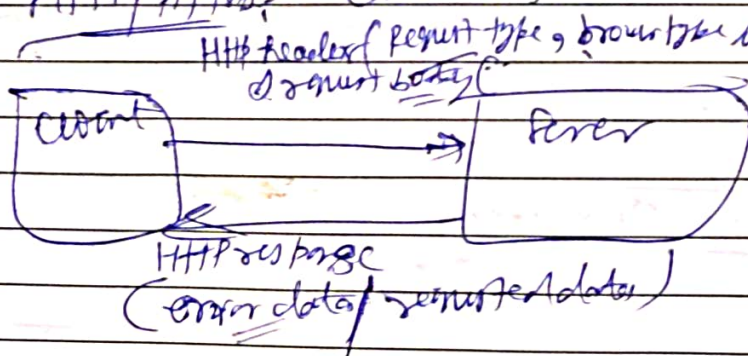 HTTP header ( request type, brows type
& request body (
client
Server
HTTP response
(error data / requested data)